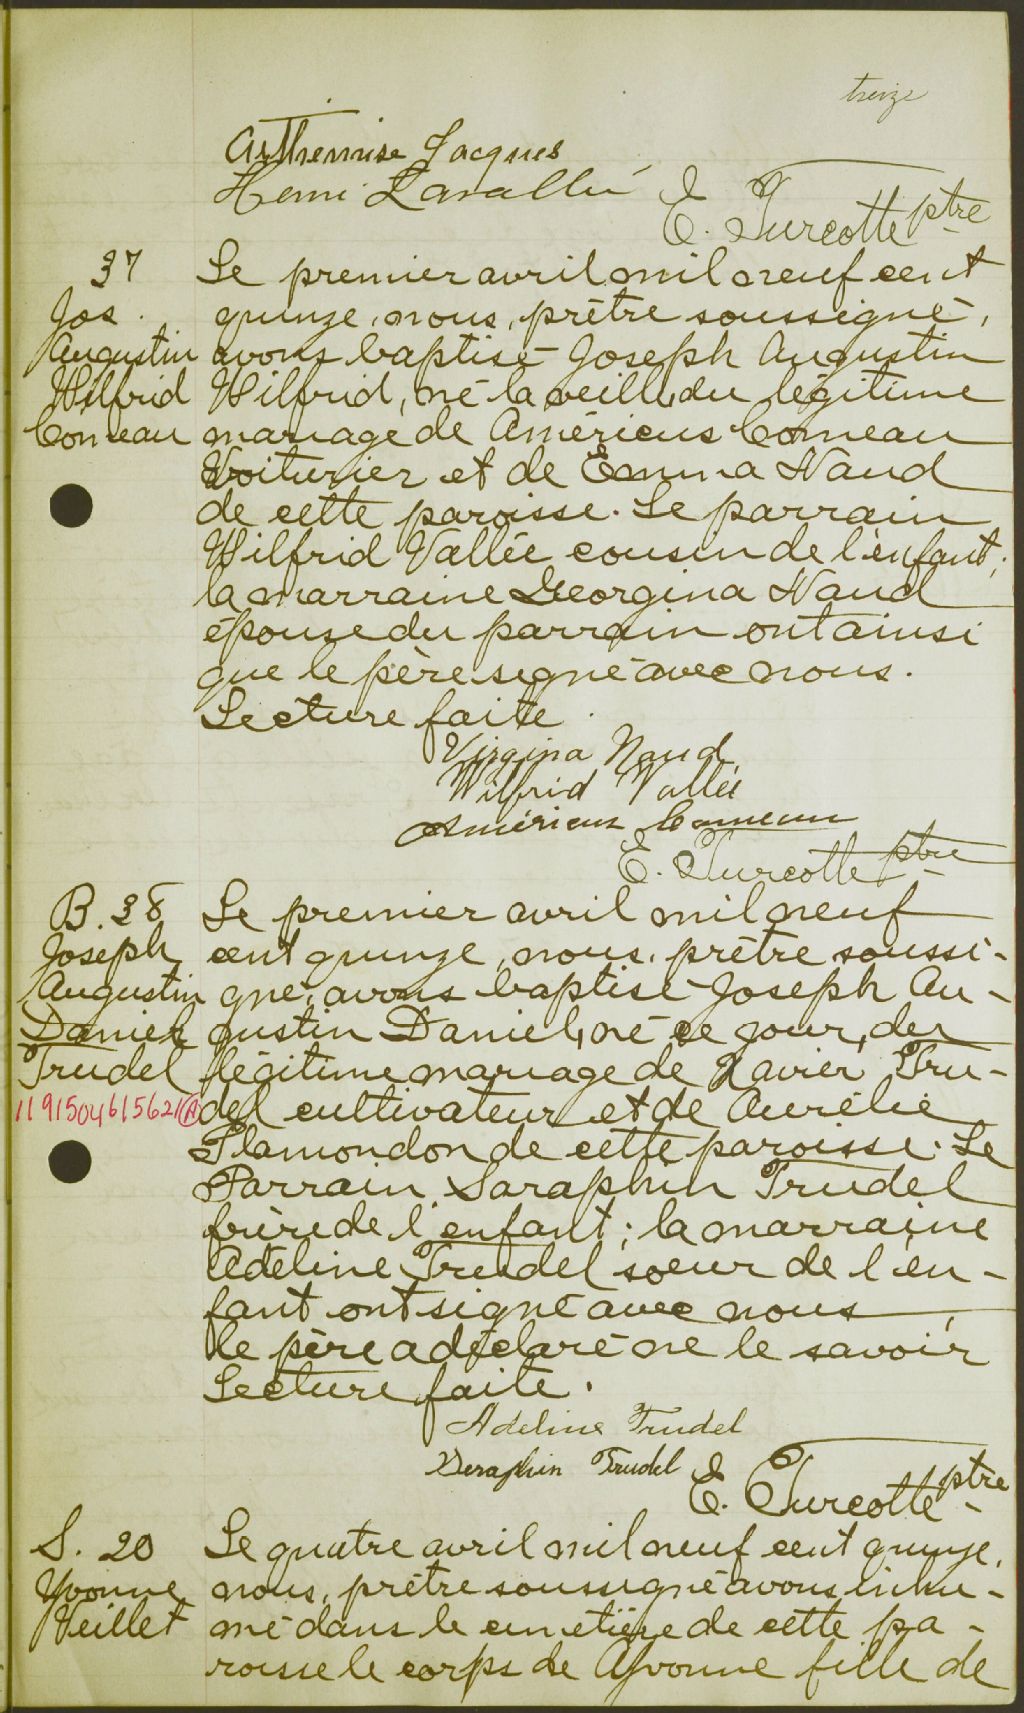 treize
Arthemise Jacques
Henri Lavallée
E. Turcotte ptre
37
Jos.
Augustin
Wilfrid
Comeau
Le premier avril mil neuf cent
quinze, nous, prêtre soussigné,
avons baptisé Joseph Augustin
Wilfrid, né la veille, du légitime
mariage de Américus Comeau
Voiturier et de Emma Naud
de cette paroisse. Le parrain
Wilfrid Vallée cousin de l'enfant;
la marraine Georgina Naud
épouse du parrain ont ainsi
que le père signé avec nous.
Lecture faite.
Virgina Naud
Wilfrid Vallée
Américus Comeau
E. Turcotte ptre
B. 38
Joseph
Augustin
Daniel
Trudel
119150461562111 A
Le premier avril mil neuf
cent quinze, nous, prêtre soussi-
gné, avons baptisé Joseph Au-
gustin Daniel, né ce jour, du
légitime mariage de Xavier Tru-
del cultivateur et de Aurélie
Plamondon de cette paroisse. Le
Parrain Saraphin Trudel
frère de l'enfant; la marraine
Adeline Trudel soeur de l'en-
fant ont signé avec nous,
le père a déclaré ne le savoir
Lecture faite.
Adeline Trudel
Seraphin Trudel
E. Turcotte ptre
S. 20
Yvonne
Veillet
Le quatre avril mil neuf cent quinze,
nous, prêtre soussigné avons inhu-
mé dans le cimetière de cette pa-
roisse le corps de Yvonne fille de